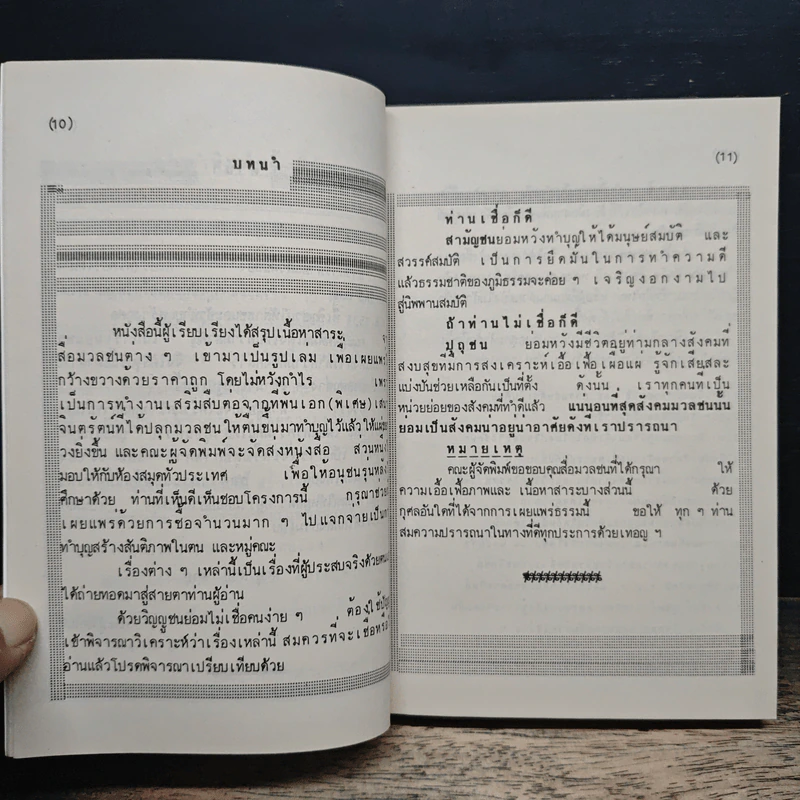 (10)
บทนำ
หนังสือนี้ผู้เรียบเรียงได้สรุปเนื้อหาสาระ
สื่อมวลชนต่าง ๆ เข้ามาเป็นรูปเล่ม เพื่อเผยแพร่
กว้างขวางด้วยราคาถูก โดยไม่หวังกำไร
เป็นการทำงานเสริมสืบต่อจากที่พันเอก(พิเศษ)
จินตรัตน์ที่ได้ปลุกมวลชนให้ตื่นขึ้นมาทำบุญไว้แล้ว
วงยิ่งขึ้น และคณะผู้จัดพิมพ์จะจัดส่งหนังสือ ส่วนหนึ่ง
มอบให้กับห้องสมุดทั่วประเทศ เพื่อให้อนุชนรุ่นหลัง
ศึกษาด้วย ท่านที่เห็นดีเห็นชอบโครงการนี้ กรุณาช่วย
เผยแพร่ด้วยการซื้อจำนวนมาก ๆ ไปแจกจ่ายเป็นการ
ทำบุญสร้างสันติภาพในตน และหมู่คณะ
เรื่องต่าง ๆ เหล่านี้เป็นเรื่องที่ผู้ประสบจริงด้วยตนเอง
ได้ถ่ายทอดมาสู่สายตาท่านผู้อ่าน
ด้วยวิญญูชนย่อมไม่เชื่อคนง่าย ๆ ต้องใช้
เข้าพิจารณาวิเคราะห์ว่าเรื่องเหล่านี้ สมควรที่จะเชื่อหรือ
อ่านแล้วโปรดพิจารณาเปรียบเทียบด้วย
(11)
ท่านเชื่อก็ดี
สามัญชนย่อมหวังทำบุญให้ได้มนุษย์สมบัติ และ
สวรรค์สมบัติ เป็นการยึดมั่นในการทำความดี
แล้วธรรมชาติของภูมิธรรมจะค่อย ๆ เจริญงอกงามไป
สู่นิพพานสมบัติ
ถ้าท่านไม่เชื่อก็ดี
ปุถุชน ย่อมหวังมีชีวิตอยู่ท่ามกลางสังคมที่
สงบสุขที่มีการสงเคราะห์เอื้อเฟื้อเผื่อแผ่ รู้จักเสียสละ
แบ่งปันช่วยเหลือกันเป็นที่ตั้ง ดังนั้น เราทุกคนที่เป็น
หน่วยย่อยของสังคมที่ทำดีแล้ว แน่นอนที่สุดสังคมมวลชนนั้น
ย่อมเป็นสังคมน่าอยู่น่าอาศัยดังที่เราปรารถนา
หมายเหตุ
คณะผู้จัดพิมพ์ขอขอบคุณสื่อมวลชนที่ได้กรุณา ให้
ความเอื้อเฟื้อภาพและ เนื้อหาสาระบางส่วนนี้ ด้วย
กุศลอันใดที่ได้จากการเผยแพร่ธรรมนี้ ขอให้ ทุก ๆ ท่าน
สมความปรารถนาในทางที่ดีทุกประการด้วยเทอญ ฯ